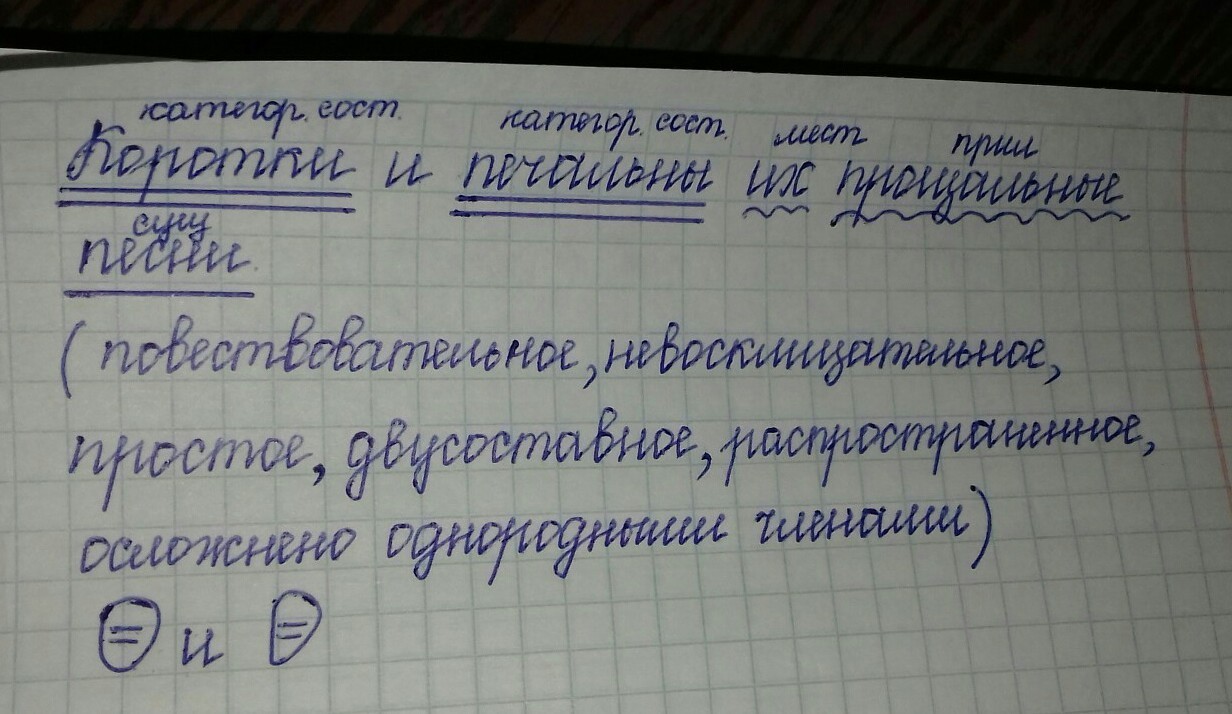 категор. сост. категор. сост. мест прил
Коротки и печальны их прощальные
сущ
песни.
(повествовательное, невосклицательное,
простое, двусоставное, распространенное,
осложнено однородными членами)
= и =